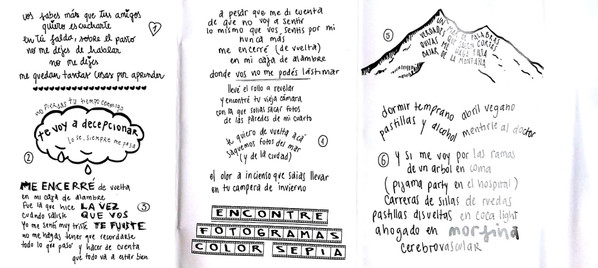 vos sabés más que tus amigos
quiero escucharte
en tu falda, sobre el pasto
no me dejes de hablar
no me dejes
me quedan tantas cosas por aprender
1
no pierdas tu tiempo conmigo
te voy a decepcionar
lo sé, siempre me pasa
2
ME ENCERRÉ de vuelta
en mi caja de alambre
Fue la que hice LA VEZ
cuando saliste QUE VOS
Yo me sentí muy triste TE FUISTE
no me hagas tener que recordarse
todo lo que pasó y hacer de cuenta
que todo va a estar bien
3
a pesar que me di cuenta
de que no voy a sentir
lo mismo que vos sentís por mi
nunca más
me encerré (de vuelta)
en mi caja de alambre
donde vos no me podés lastimar
llevé el rollo a revelar
y encontré tu vieja cámara
con la que solías sacar fotos
de las paredes de mi cuarto
te quiero de vuelta acá
saquemos fotos del mar
(y de la ciudad)
4
el olor a incienso que solías llevar
en tu campera de invierno
ENCONTRE
FOTOGRAMAS
COLOR SEPIA
5
UN MAR DE PALABRAS
VERDADES
QUIZÁS
BAJAR DE LA MONTAÑA
dormir temprano abril vegano
pastillas y alcohol mentirle al doctor
6
Y si me voy por las ramas
de un árbol en coma
(pijama party en el hospital)
Carreras de sillas de ruedas
pastillas disueltas en coca light
ahogado en morfina
cerebrovascular